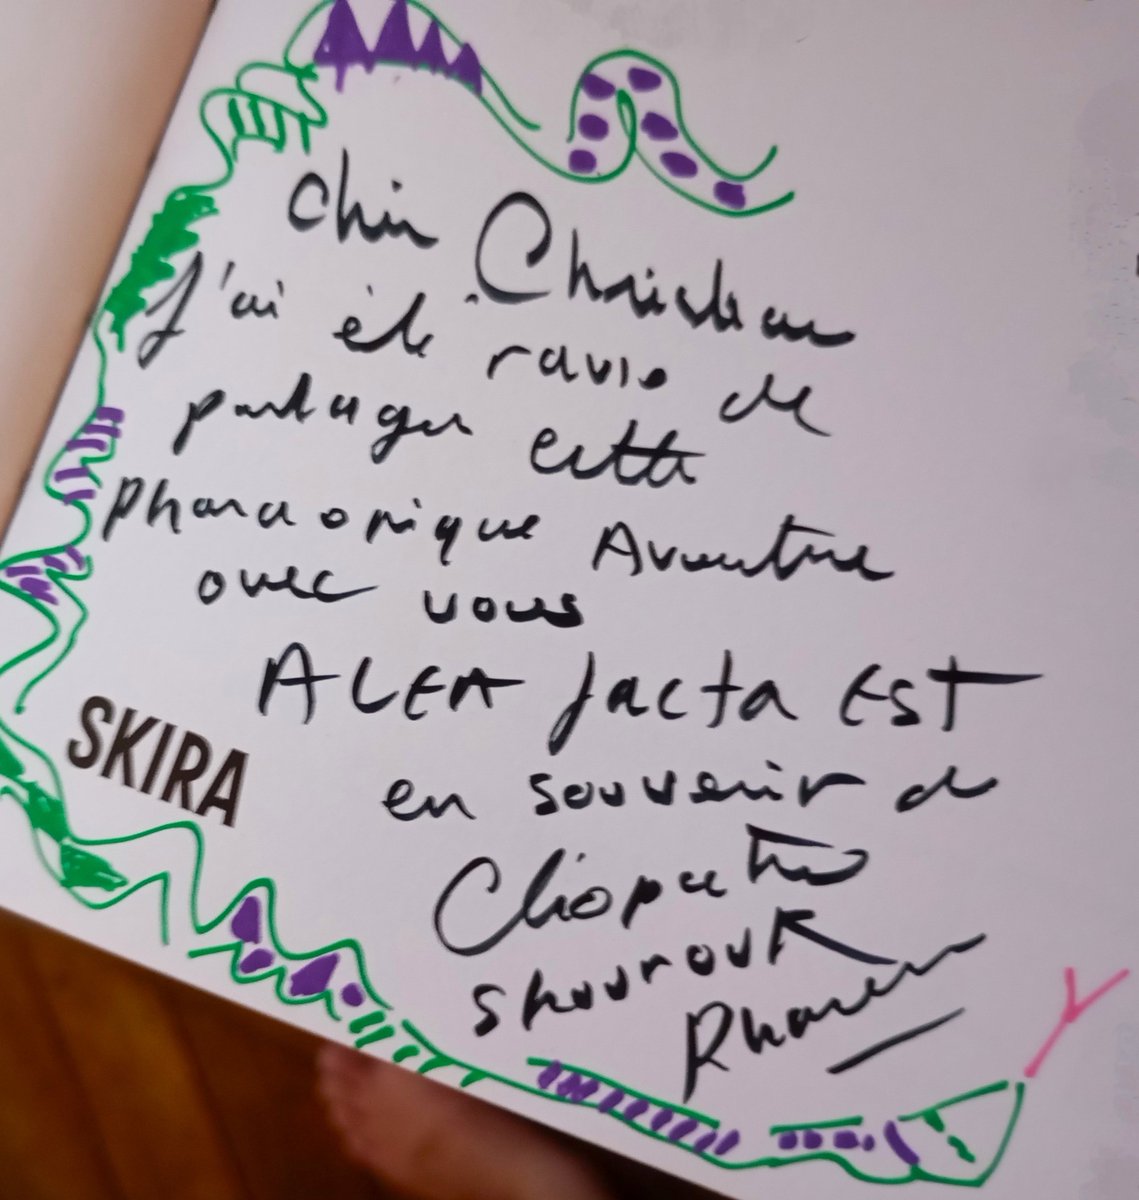 Cher Christian
J'ai été ravie de
partager cette
pharaonique Aventure
avec vous
ALEA jacta EST
SKIRA
en souvenir de
Cléopatre
shourouk
Rhaiem